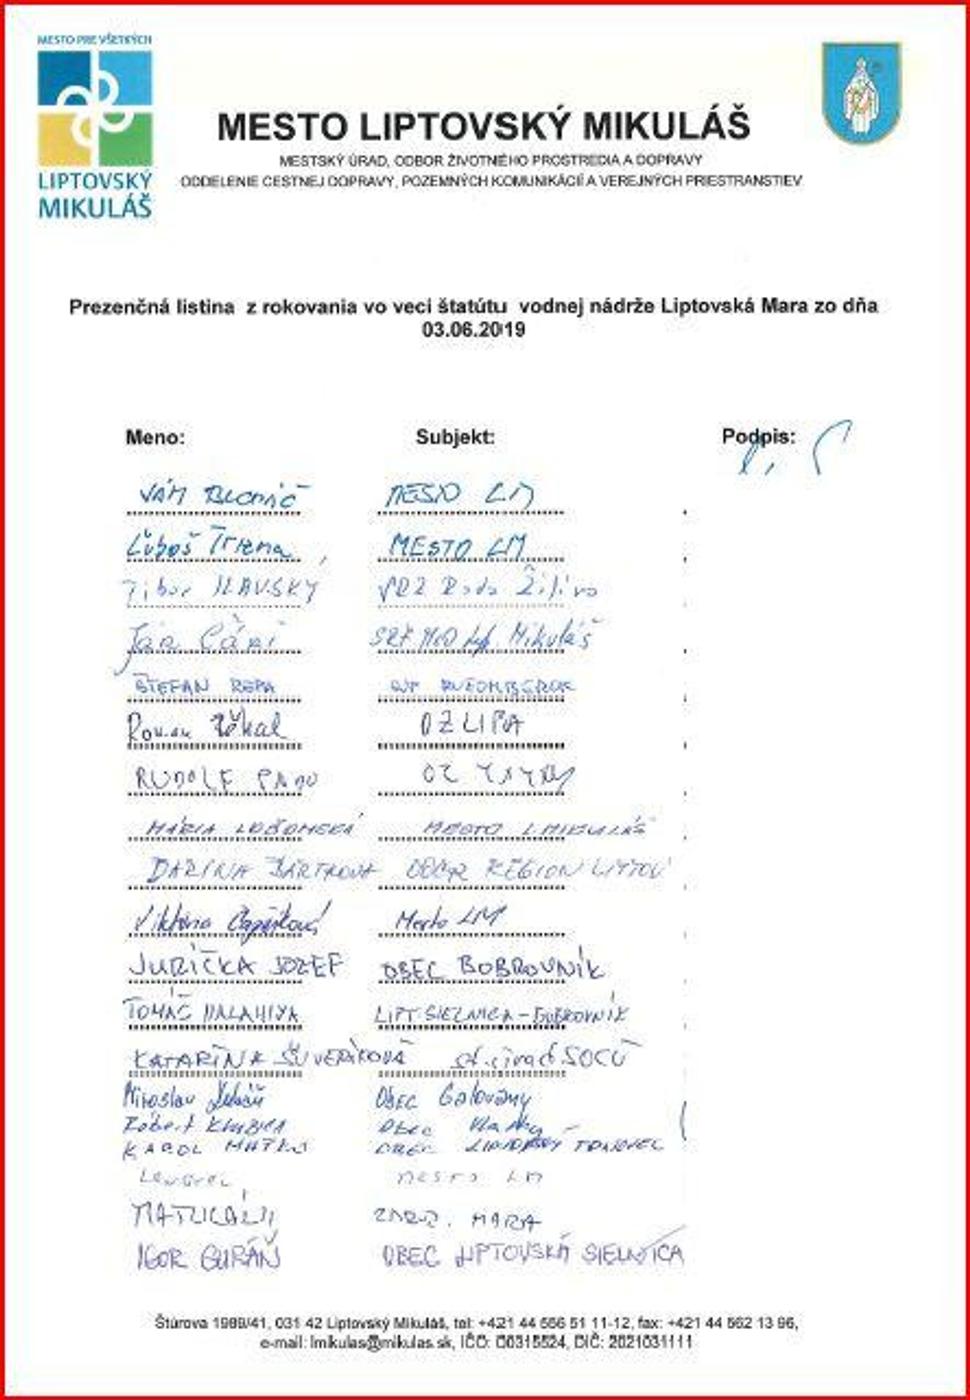 MESTO PRE VŠETKÝCH
LIPTOVSKÝ
MIKULÁŠ
MESTO LIPTOVSKÝ MIKULÁŠ
MESTSKÝ ÚRAD, ODBOR ŽIVOTNÉHO PROSTREDIA A DOPRAVY
ODDELENIE CESTNEJ DOPRAVY, POZEMNÝCH KOMUNIKÁCIÍ A VEREJNÝCH PRIESTRANSTIEV
Prezenčná listina z rokovania vo veci štatútu vodnej nádrže Liptovská Mara zo dňa
03.06.2019
Meno: Subjekt: Podpis:
MESTO LM
Ľuboš Trizna MESTO LM
Tibor SLAVSKÝ Rada Žilina
Ján SRZ MO Lipt. Mikuláš
ŠTEFAN REPA RUŽOMBEROK
Roman OZ LIPA
RUDOLF PADO OZ TATRY
MÁRIA MESTO L. MIKULÁŠ
DARINA BARTKOVÁ OOCR REGION LIPTOV
Viktória Čapčíková Mesto LM
JURIČKA JOZEF OBEC BOBROVNÍK
TOMÁŠ LIPT. SIELNICA - BOBROVNÍK
KATARÍNA ŠUVERÍKOVÁ
Miroslav Obec Galovany
Róbert Klubica Obec Vlachy
KAROL MATKO OBEC LIPTOVSKÝ TRNOVEC
MESTO LM
MARA
IGOR GURÁŇ OBEC LIPTOVSKÁ SIELNICA
Štúrova 1989/41, 031 42 Liptovský Mikuláš, tel: +421 44 556 51 11-12, fax: +421 44 562 13 96,
e-mail: lmikulas@mikulas.sk, IČO: 00315524, DIČ: 2021031111